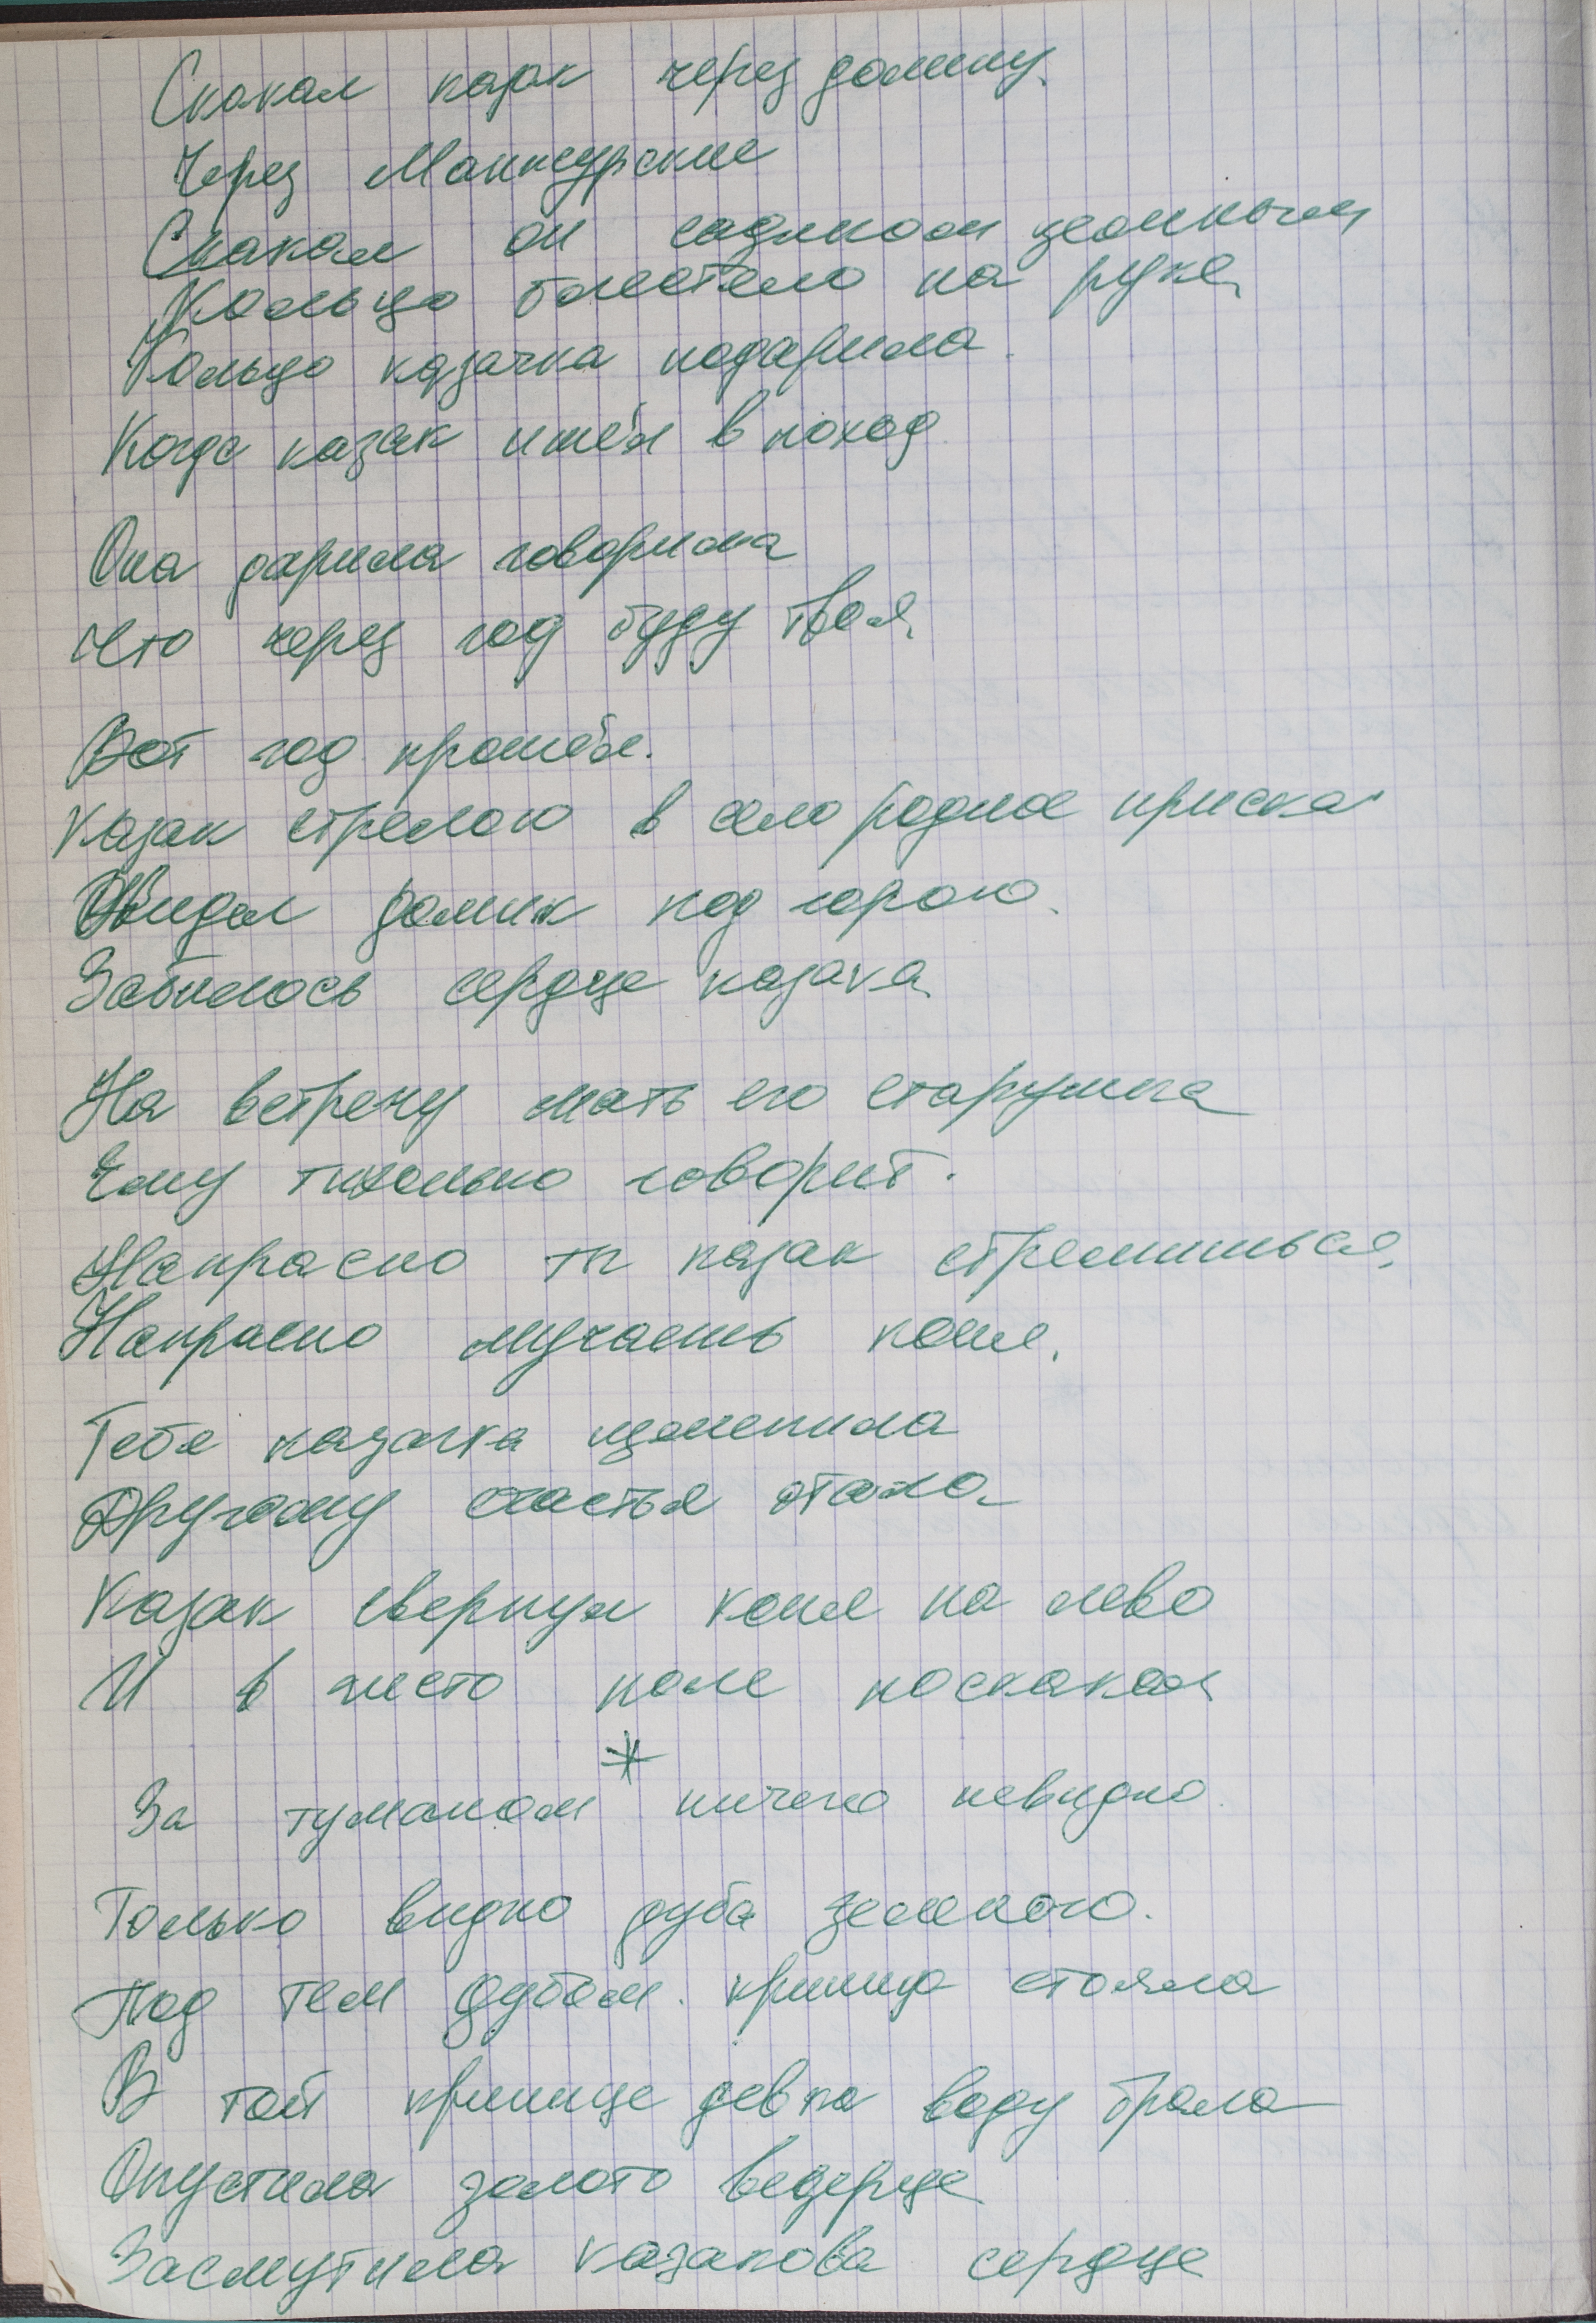 Скакал казак через долину.
Через Манжурские
Скакал он садиком зеленым
Кольцо блестело на руке,
Кольцо казачка подарила.
Когда казак ишёл в поход
Она дарила говорила
Что через год буду твоя,
Вот год прошёл.
Казак стрелою в село родное приска
Увидал домик под горою.
Забилось сердце казака
На встречу мать его старушка
Ему тихонько говорит.
Напрасно ты казак стремишься,
Напрасно мучаешь коня.
Тебя казачка изменила
Другому счастья отдала
Казак свернул коня на лево
И в чисто поле поскакал
*
За туманом ничего невидно.
Только видно дуба зеленого.
Под тем дубом. криница стояла
В той кринице девка воду брала
Опустила золото ведерце
Засмутила казакова сердце